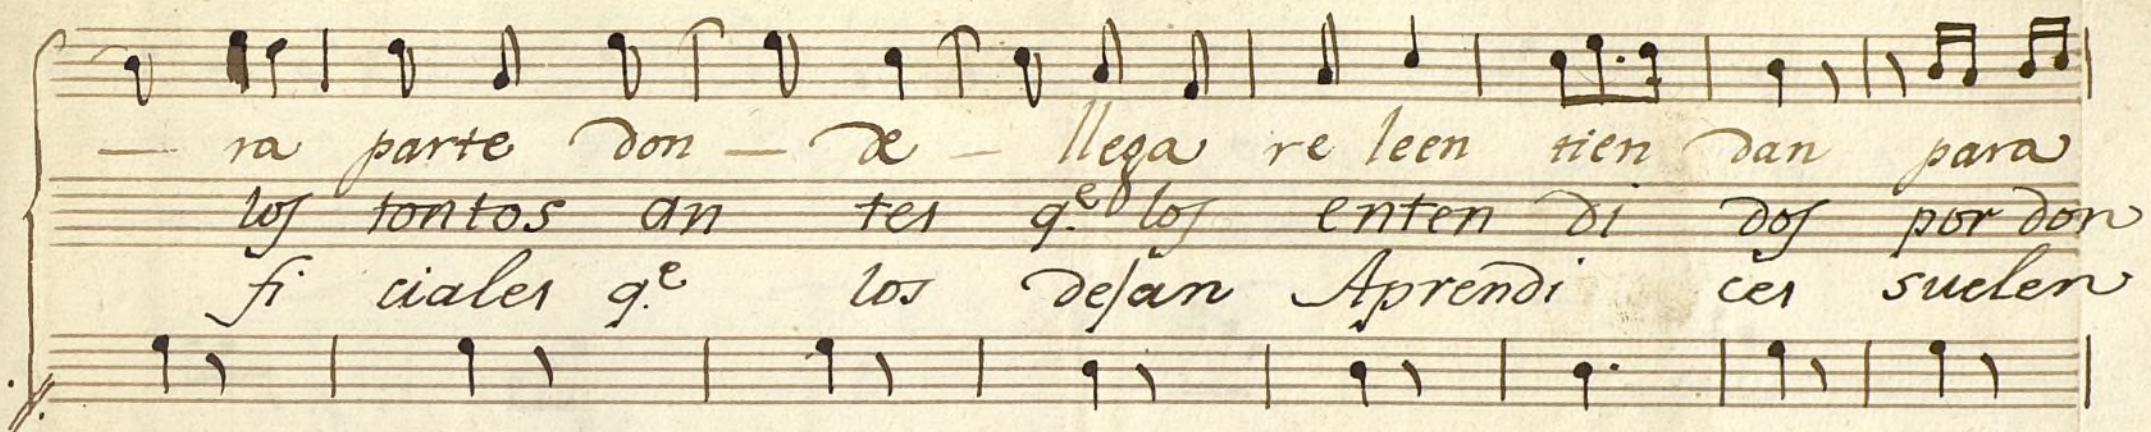 — ra parte don — de — llega re leen tien dan para
los tontos an tes q.e los enten di dos por don
fi ciales q.e los dejan Aprendi ces suelen